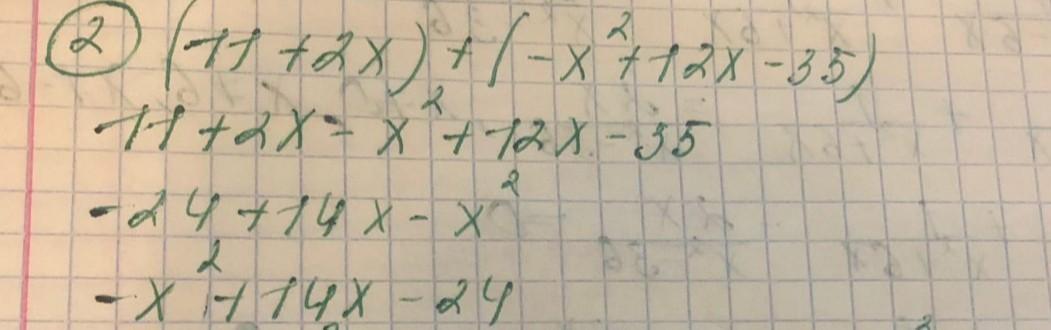 ② (11 + 2x) + (-x² + 12x - 35)
11 + 2x - x² + 12x - 35
-24 + 14x - x²
-x² + 14x - 24